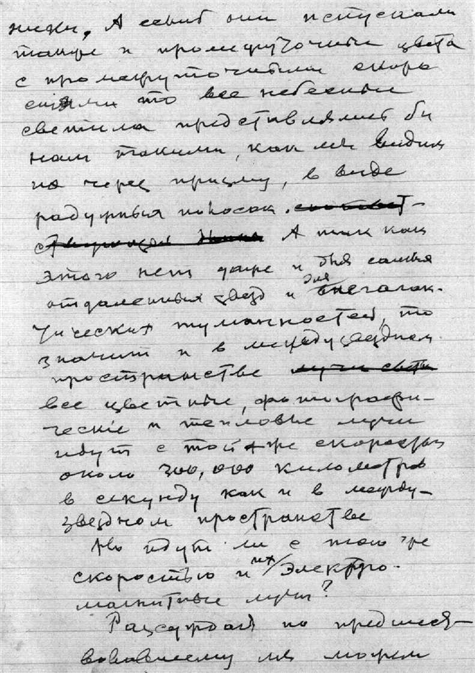 ники. А еслиб они испускали
также и промежуточные цвета
с промежуточными скоро
стями то все небесные
светила представлялись бы
нам такими, как мы видим
их через призму, в виде
радужных полосок.
А так как
этого нет даже и для самых
отдаленных звезд и для внегалак-
тических туманностей, то
значит и в междузвездном
пространстве лучи света
все цветные, фотографи-
ческие и тепловые лучи
идут с той же скоростью
около 300,000 километров
в секунду как и в между-
звездном пространстве
Но идут ли с тою же
скоростью и их Электро-
магнитные лучи?
Рассуждая по предшест-
вовавшему мы можем